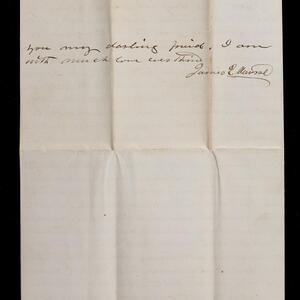 you my darling friend. I am
with much love ever thine
James E.